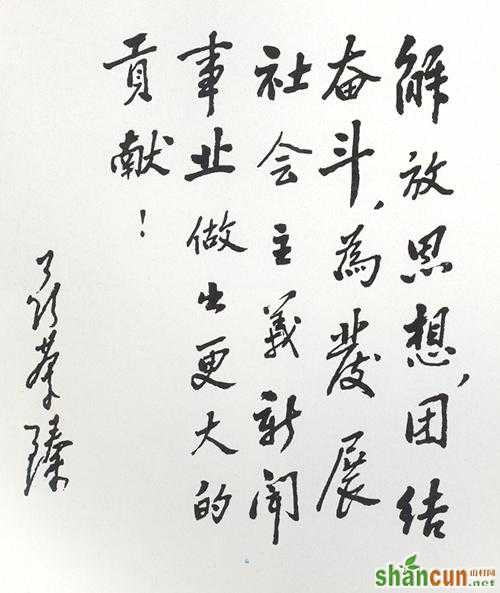 解放思想,团结
奋斗,為發展
社会主義新聞
事业做出更大的
貢献!
shancun
山村网
.net